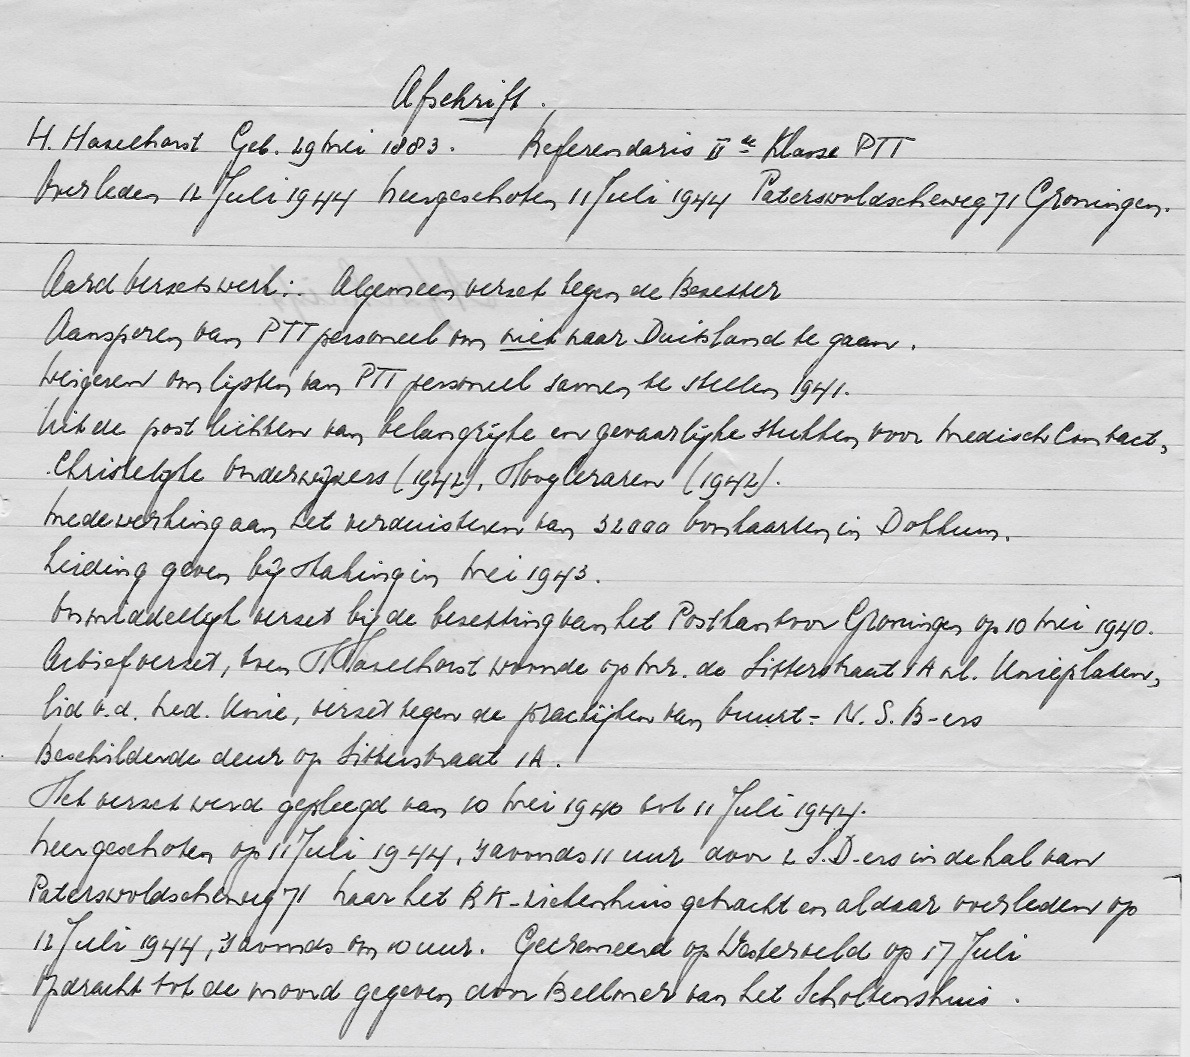 Afschrift.
H. Haselhorst Geb. 29 Mei 1883. Referendaris II de Klasse PTT
Overleden 12 Juli 1944 Neergeschoten 11 Juli 1944 Paterswoldscheweg 71 Groningen.
Aard Verzetswerk: Algemeen verzet tegen de Bezetter
Aansporen van PTT personeel om niet naar Duitsland te gaan.
Weigeren om lijsten van PTT personeel samen te stellen 1941.
Uit de post lichten van belangrijke en gevaarlijke stukken voor Medisch Contact,
Christelijke Onderwijzers (1942), Hoogleraren (1942).
Medewerking aan het verduisteren van 32000 bonkaarten in Dokkum.
Leiding geven bij Staking in Mei 1943.
Onmiddellijk verzet bij de bezetting van het Postkantoor Groningen op 10 Mei 1940.
Actief verzet, toen H. Haselhorst woonde op Mr. de Sitterstraat 1A nl. Unieplaten,
lid v.d. Ned. Unie, verzet tegen de practijken van buurt-N.S.B-ers
Beschilderde deur op Sitterstraat 1A.
Het verzet werd gepleegd van 10 Mei 1940 tot 11 Juli 1944.
Neergeschoten op 11 Juli 1944, 's avonds 11 uur door 2 S.D-ers in de hal van
Paterswoldscheweg 71 Naar het RK-ziekenhuis gebracht en aldaar overleden op
12 Juli 1944, 's avonds om 10 uur. Gecremeerd op Westerveld op 17 Juli
Opdracht tot de moord gegeven door Bellmer van het Scholtenshuis.